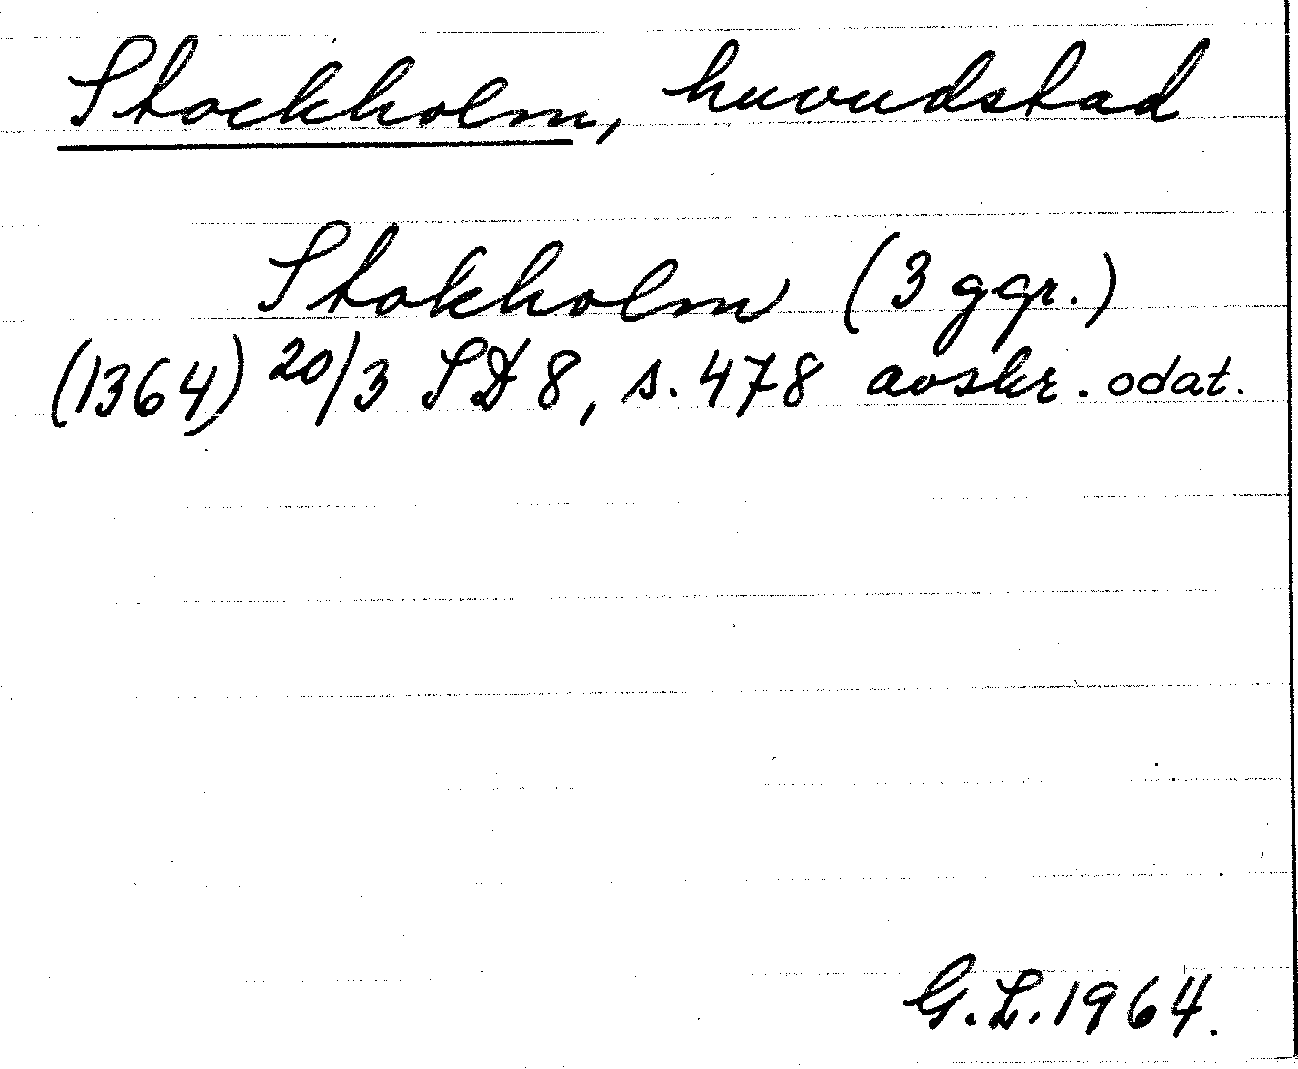 Stockholm, huvudstad
Stokholm (3 ggr.)
(1364) 20/3 SD 8, s. 478 avskr. odat.
G.L. 1964.